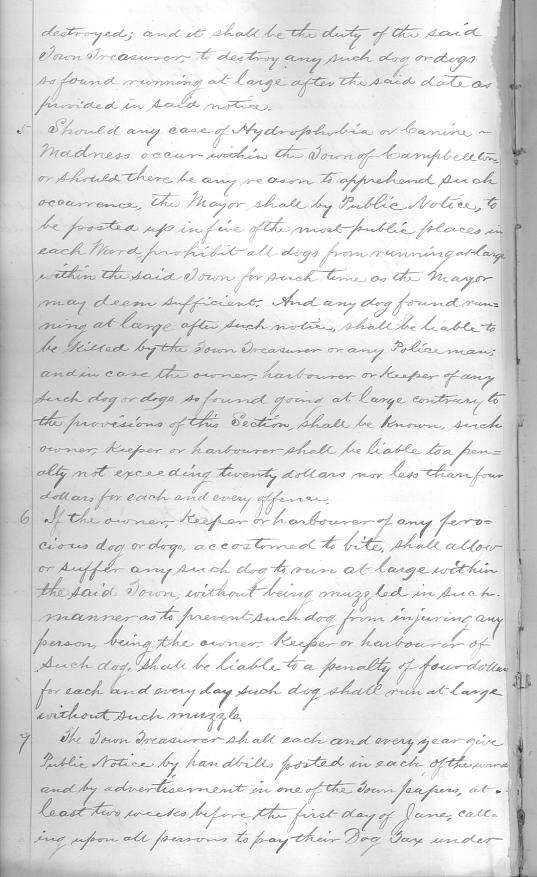 destroyed; and it shall be the duty of the said
Town Treasurer, to destroy any such dog or dogs
so found running at large after the said date as
provided in said notice.
5 Should any case of Hydrophobia or Canine ~
Madness occur within the Town of Campbellton,
or should there be any reason to apprehend such
occurrence, the Mayor shall by Public Notice, to
be posted up in five of the most public places in
each Ward prohibit all dogs from running at large
within the said Town for such time as the Mayor
may deem sufficient. And any dog found run=
ning at large after such notice, shall be liable to
be killed by the Town Treasurer or any Policeman;
and in case the owner, harbourer or keeper of any
such dog or dogs so found going at large contrary to
the provisions of this Section, shall be known, such
owner, keeper or harbourer shall be liable to a pen=
alty not exceeding twenty dollars nor less than four
dollars for each and every offence.
6 If the owner, keeper or harbourer of any fero=
cious dog or dogs, accostomed to bite, shall allow
or suffer any such dog to run at large within
the said Town, without being muzzled in such
manner as to prevent such dog from injuring any
person, being the owner, keeper or harbourer of
such dog, shall be liable to a penalty of four dollars
for each and every day such dog shall run at large
without such muzzle.
7 The Town Treasurer shall each and every year give
Public Notice by handbills posted in each of the wards
and by advertisement in one of the Town papers, at
least two weeks before, the first day of June, call=
ing upon all persons to pay their Dog Tax under